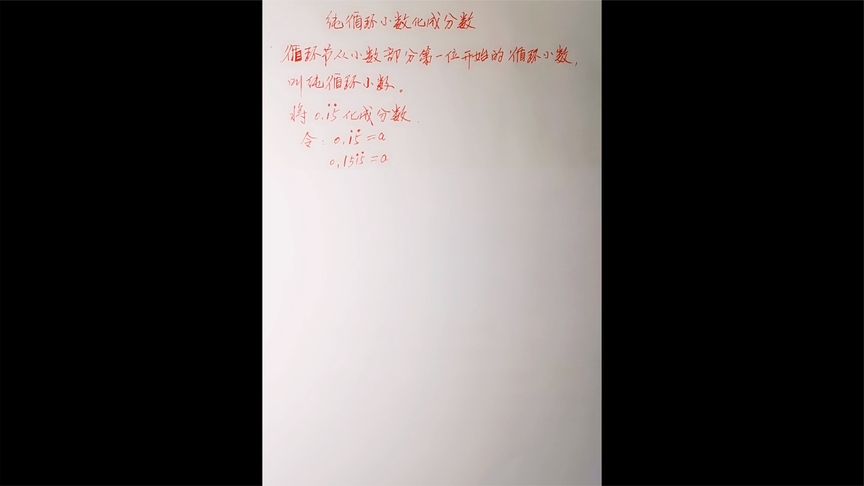 纯循环小数化成分数
循环节从小数部分第一位开始的循环小数，
叫纯循环小数。
将0.1̇5̇化成分数.
令：0.1̇5̇=a
0.151̇5̇=a